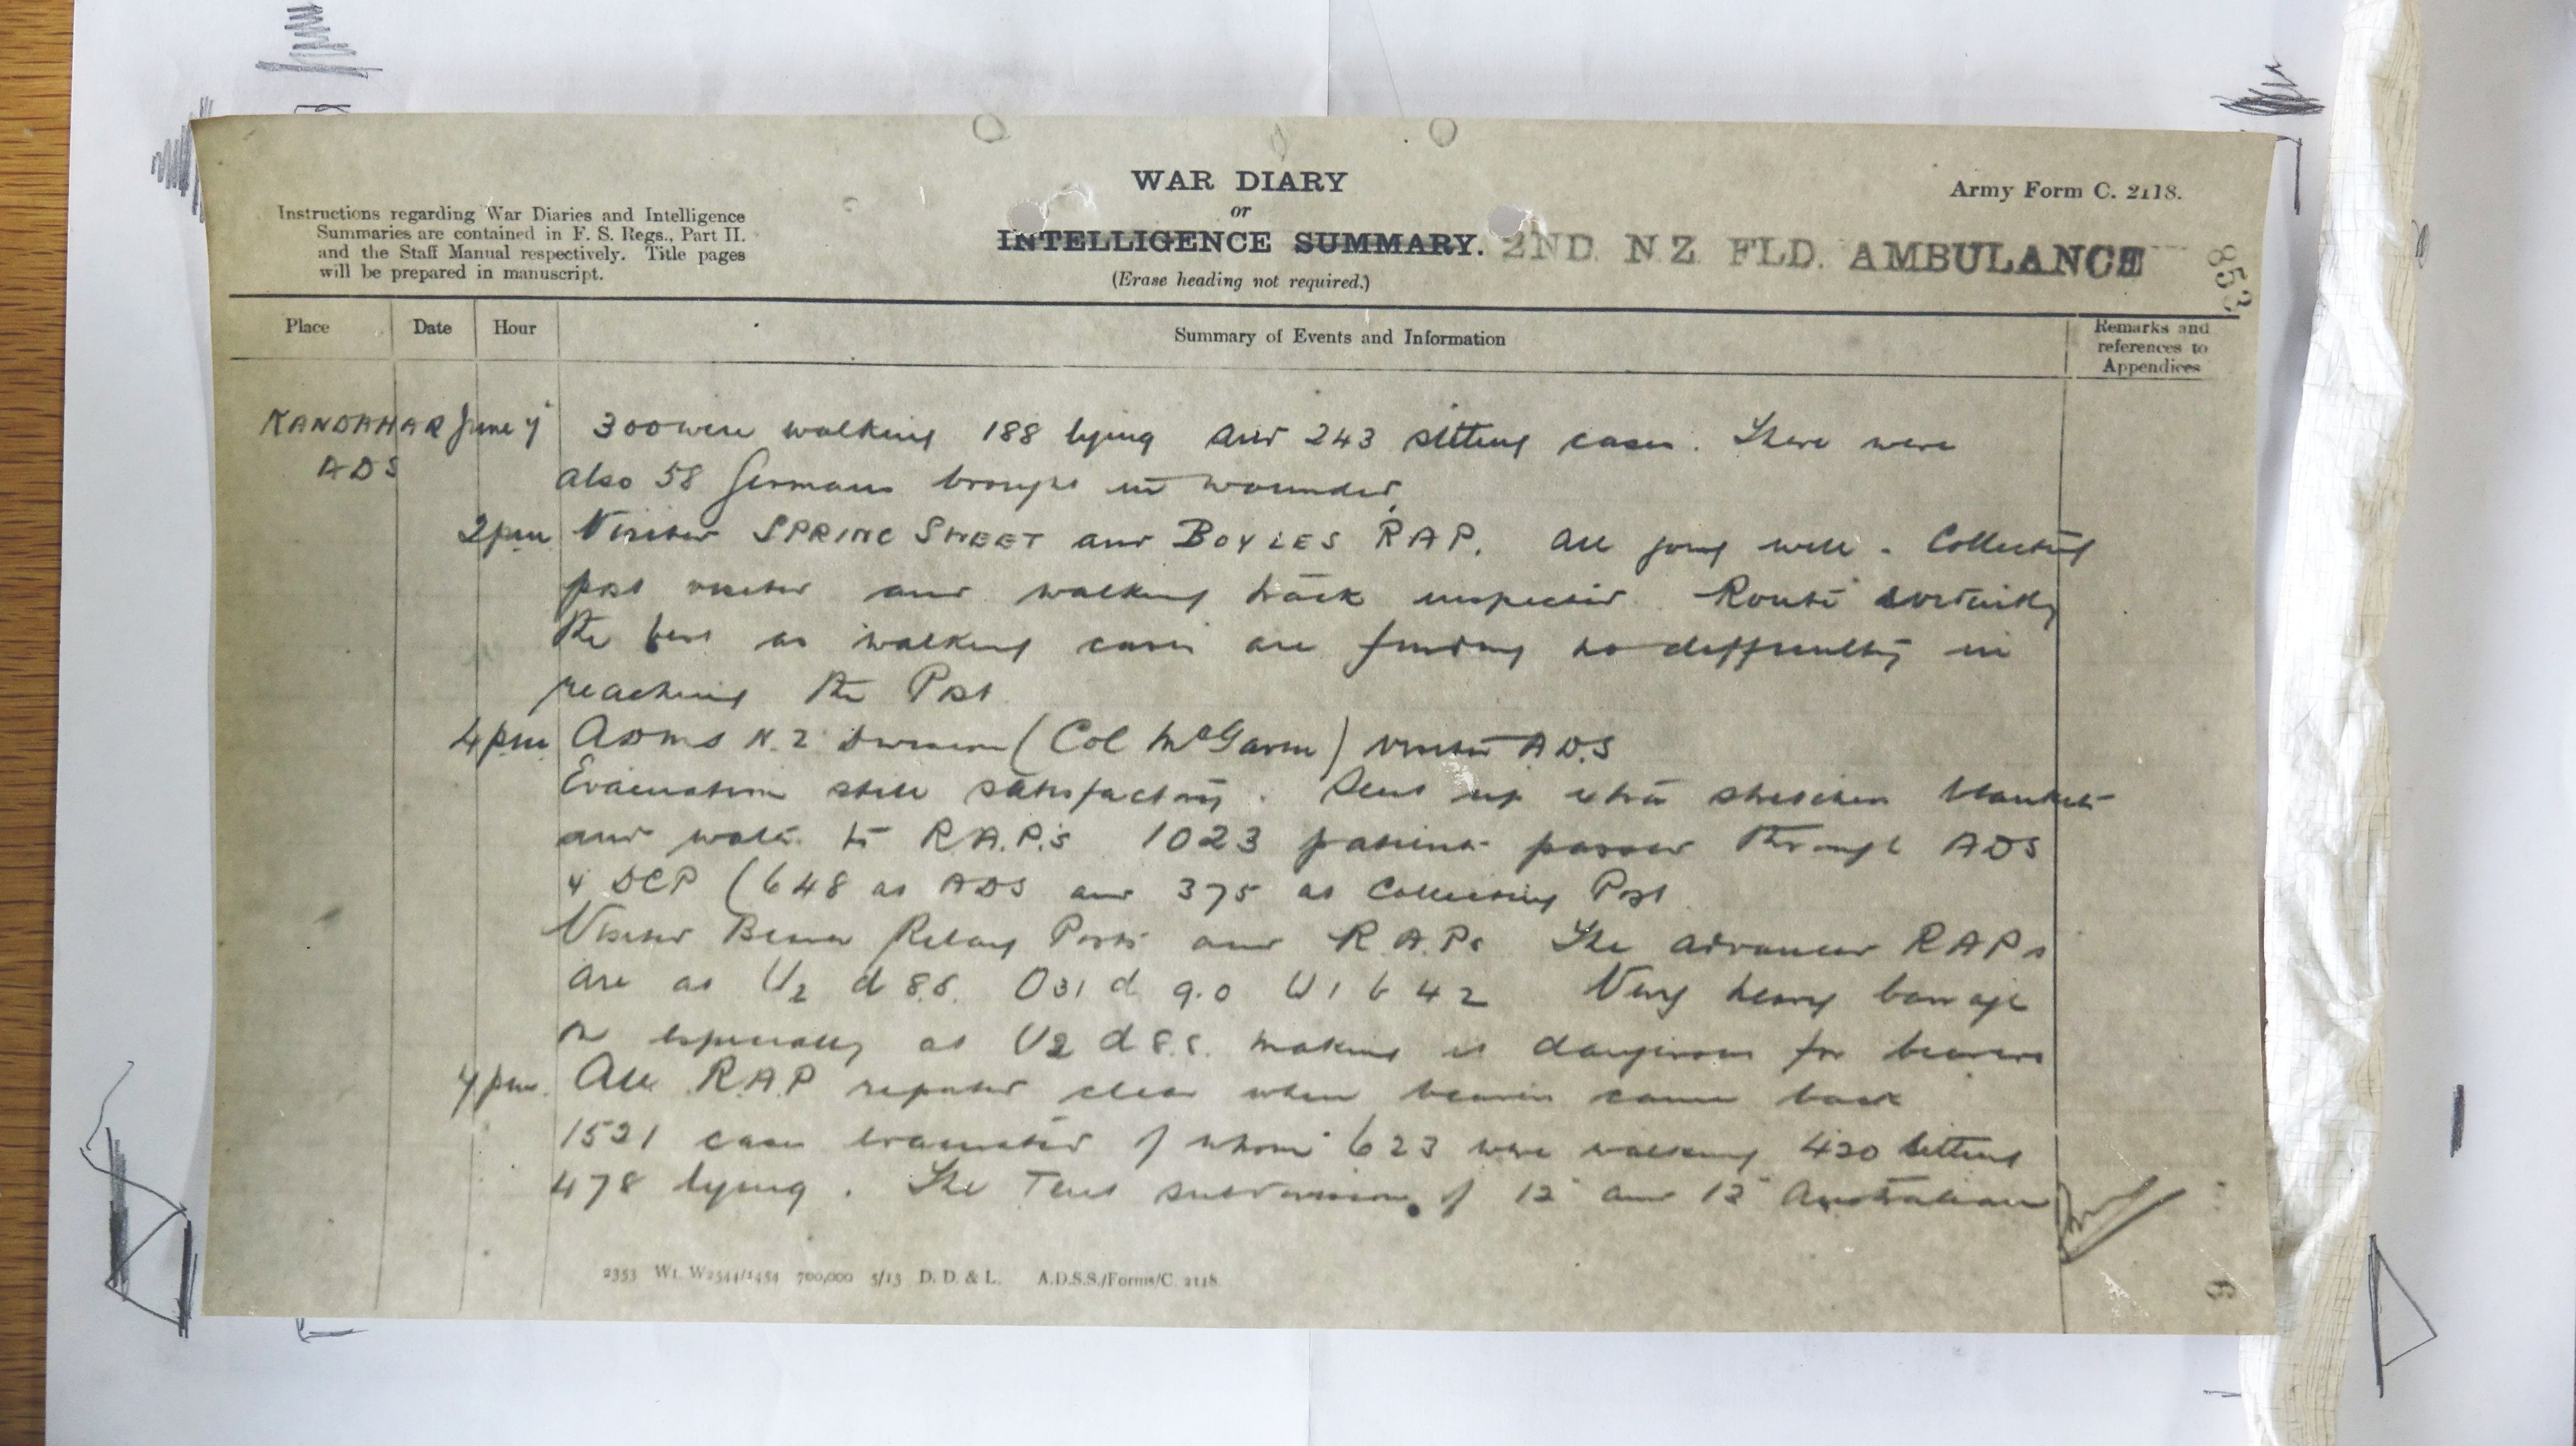 WAR DIARY
or
INTELLIGENCE SUMMARY.
(Erase heading not required.)
Army Form C. 2118.
2ND. N Z FLD. AMBULANCE
853
Instructions regarding War Diaries and Intelligence
Summaries are contained in F. S. Regs., Part II.
and the Staff Manual respectively. Title pages
will be prepared in manuscript.
Place Date Hour Summary of Events and Information Remarks and references to Appendices
KANDAHAR June 7 300 were walking 188 lying and 243 sitting cases. There were
ADS also 58 Germans brought in wounded
2pm Visited SPRING STREET and BOYLES RAP. All going well. Collecting
post visited and walking track inspected. Route certainly
the best as walking cases are finding no difficulty in
reaching the Post
4pm ADMS N.Z Division (Col McGavin) visited ADS
Evacuation still satisfactory. Sent up extra stretchers blankets
and water to R.A.P.s 1023 patients passed through ADS
& DCP (648 at ADS and 375 at Collecting Post
Visited Bearer Relay Posts and R.A.Ps The advanced RAPs
are at U2 d 8.8. O31 d 9.0 U1 b 4 2 Very heavy barrage
on especially at U2 d 8.8. making it dangerous for bearers
7pm. All R.A.P reported clear when bearers came back
1521 cases evacuated of whom 623 were walking 420 sitting
478 lying. The Tent subdivisions of 12 and 13 Australian
2353 Wt. W2544/1454 700,000 5/15 D. D. & L. A.D.S.S./Forms/C. 2118.